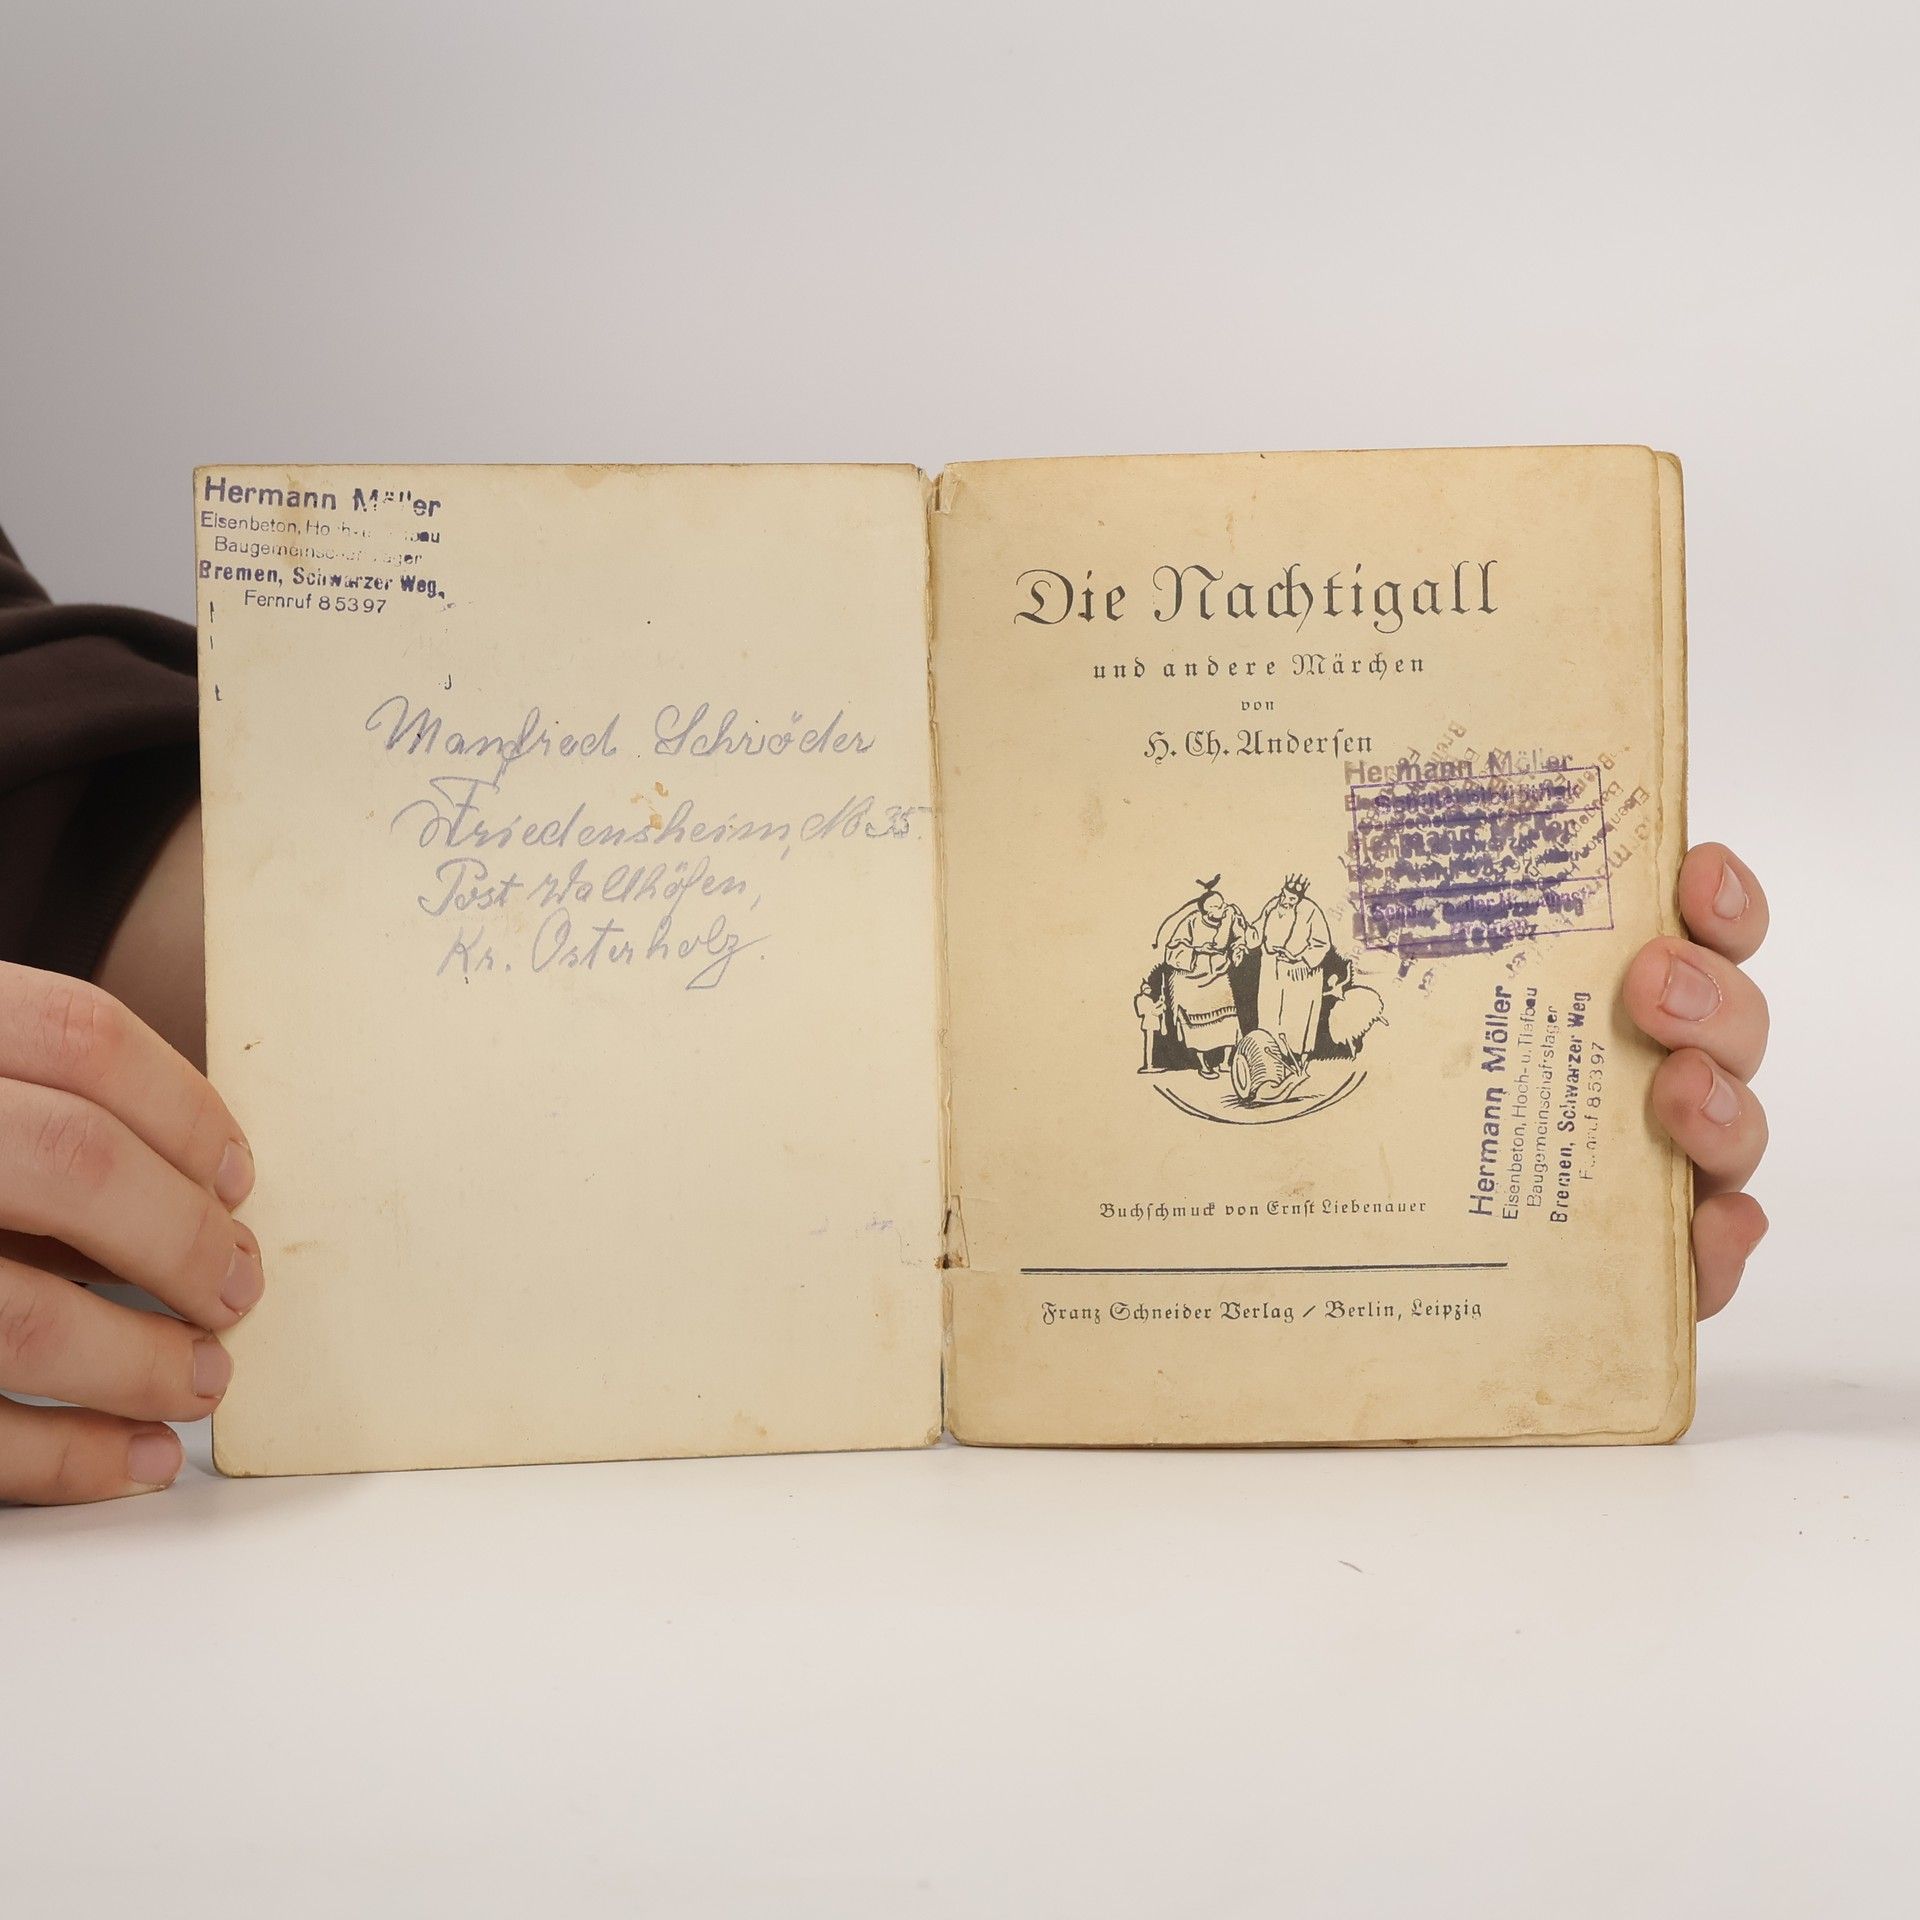 Hermann Möller
Eisenbeton, Hoch- u. Tiefbau
Baugemeinschaftslager
Bremen, Schwarzer Weg,
Fernruf 85397
Manfred Schröder
Friedensheim, No 35.
Post Wallhöfen,
Kr. Osterholz.
Die Nachtigall
und andere Märchen
von
H. Ch. Andersen
Hermann Möller
Hermann Möller
Eisenbeton, Hoch- u. Tiefbau
Baugemeinschaftslager
Bremen, Schwarzer Weg
Fernruf 85397
Buchschmuck von Ernst Liebenauer
Franz Schneider Verlag / Berlin, Leipzig